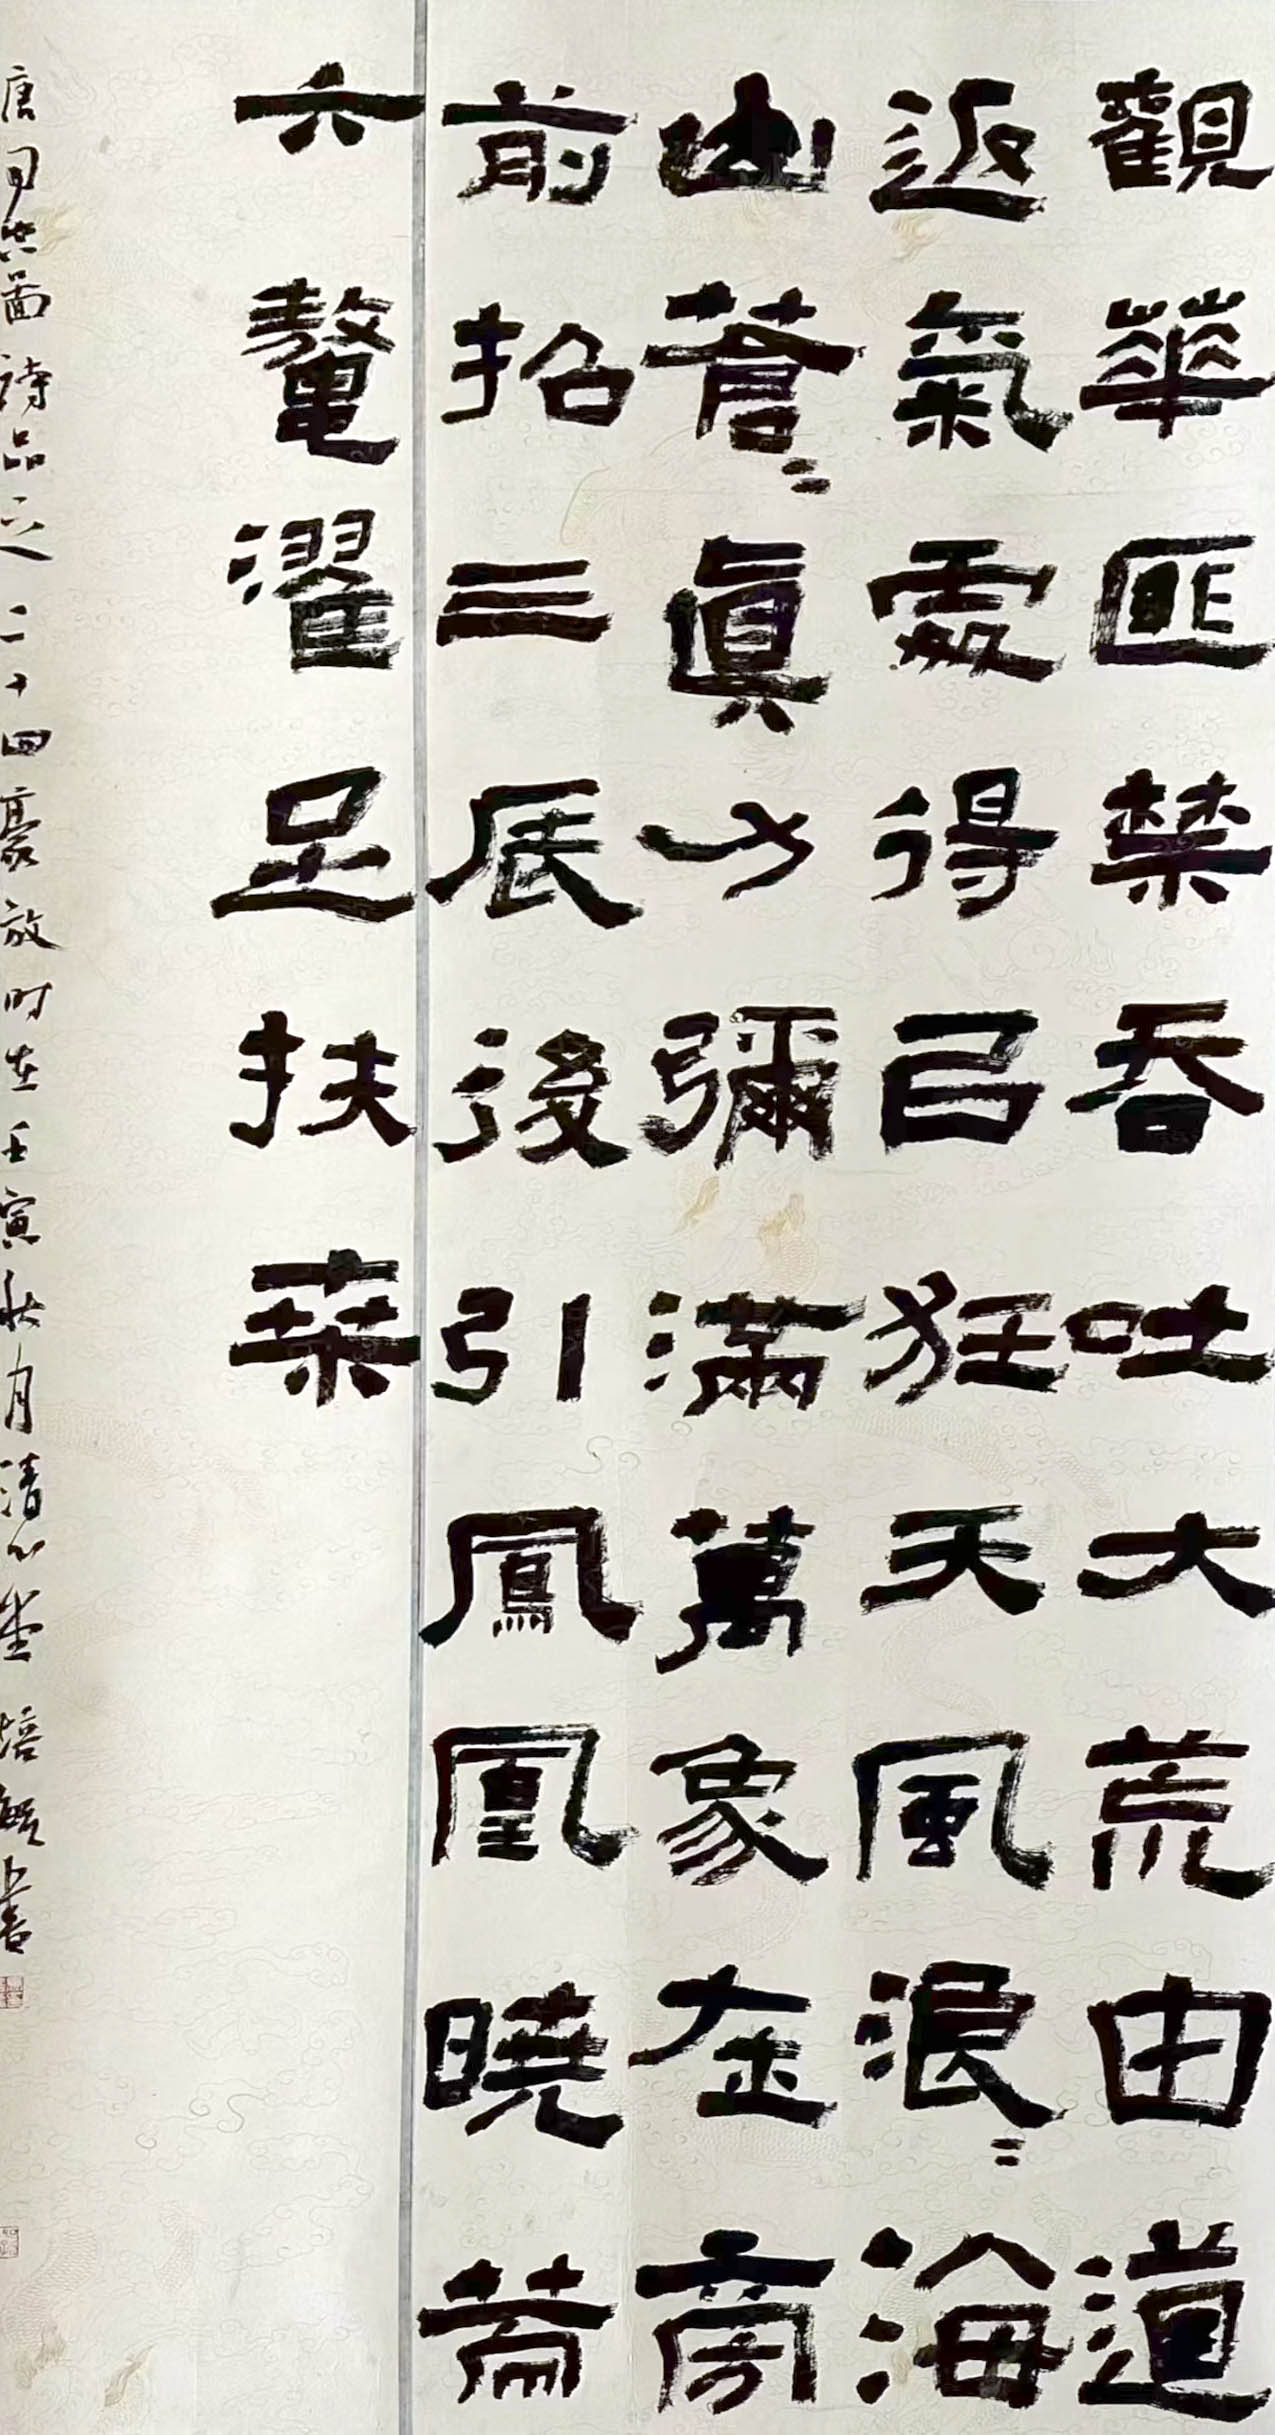 觀華匪禁吞吐大荒由道
返氣處得㠯狂天風浪〻海
山蒼〻眞力彌滿萬象在旁
前招三辰後引鳳凰曉策
六鼇濯足扶桒
唐司空圖詩品之二十四豪放时在壬寅秋月清心堂培書